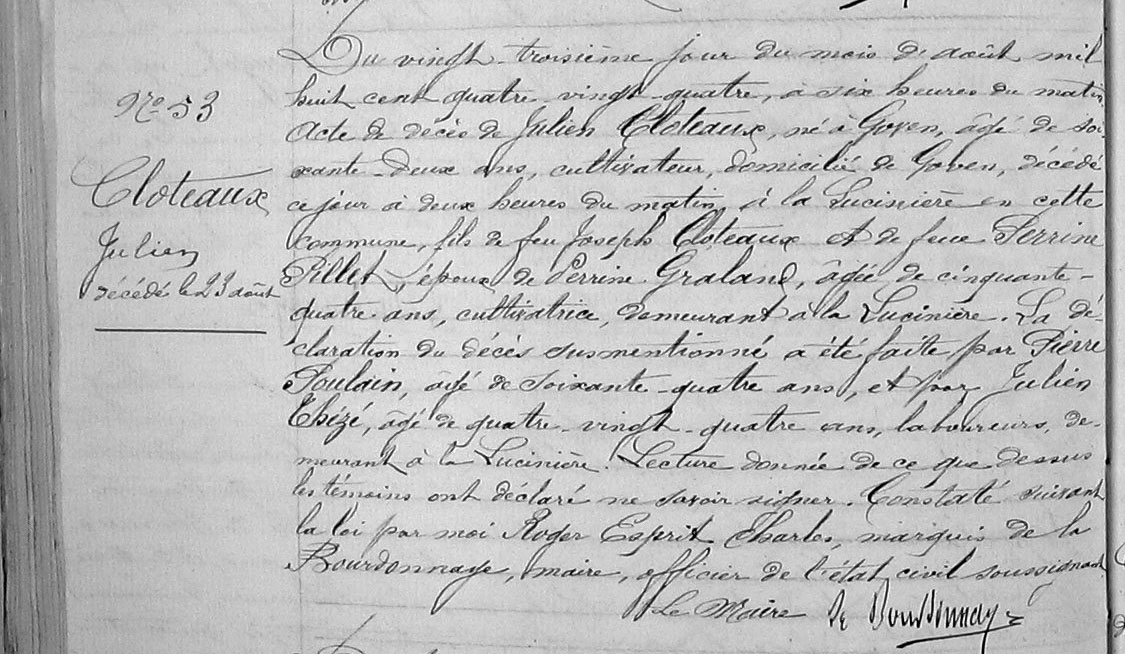 Nro 53
Cloteaux
Julien
décédé le 23 août
Du vingt-troisième jour du mois de août mil
huit cent quatre-vingt-quatre, à six heures du matin
Acte de décès de Julien Cloteaux, né à Goven, âgé de soi
xante-deux ans, cultivateur, domicilié de Goven, décédé
ce jour à deux heures du matin, à la Lucinière en cette
commune, fils de feu Joseph Cloteaux et de feue Perrine
Pillet, époux de Perrine Graland, âgée de cinquante-
quatre ans, cultivatrice, demeurant à la Lucinière. La dé-
claration du décès susmentionné a été faite par Pierre
Poulain, âgé de soixante-quatre ans, et par Julien
Thézé, âgé de quatre-vingt-quatre ans, laboureurs, de-
meurant à la Lucinière. Lecture donnée de ce que dessus
les témoins ont déclaré ne savoir signer. Constaté suivant
la loi par moi Roger Esprit Charles, marquis de la
Bourdonnaye, maire, officier de l'état civil soussigné
Le Maire De Bourdonnaye